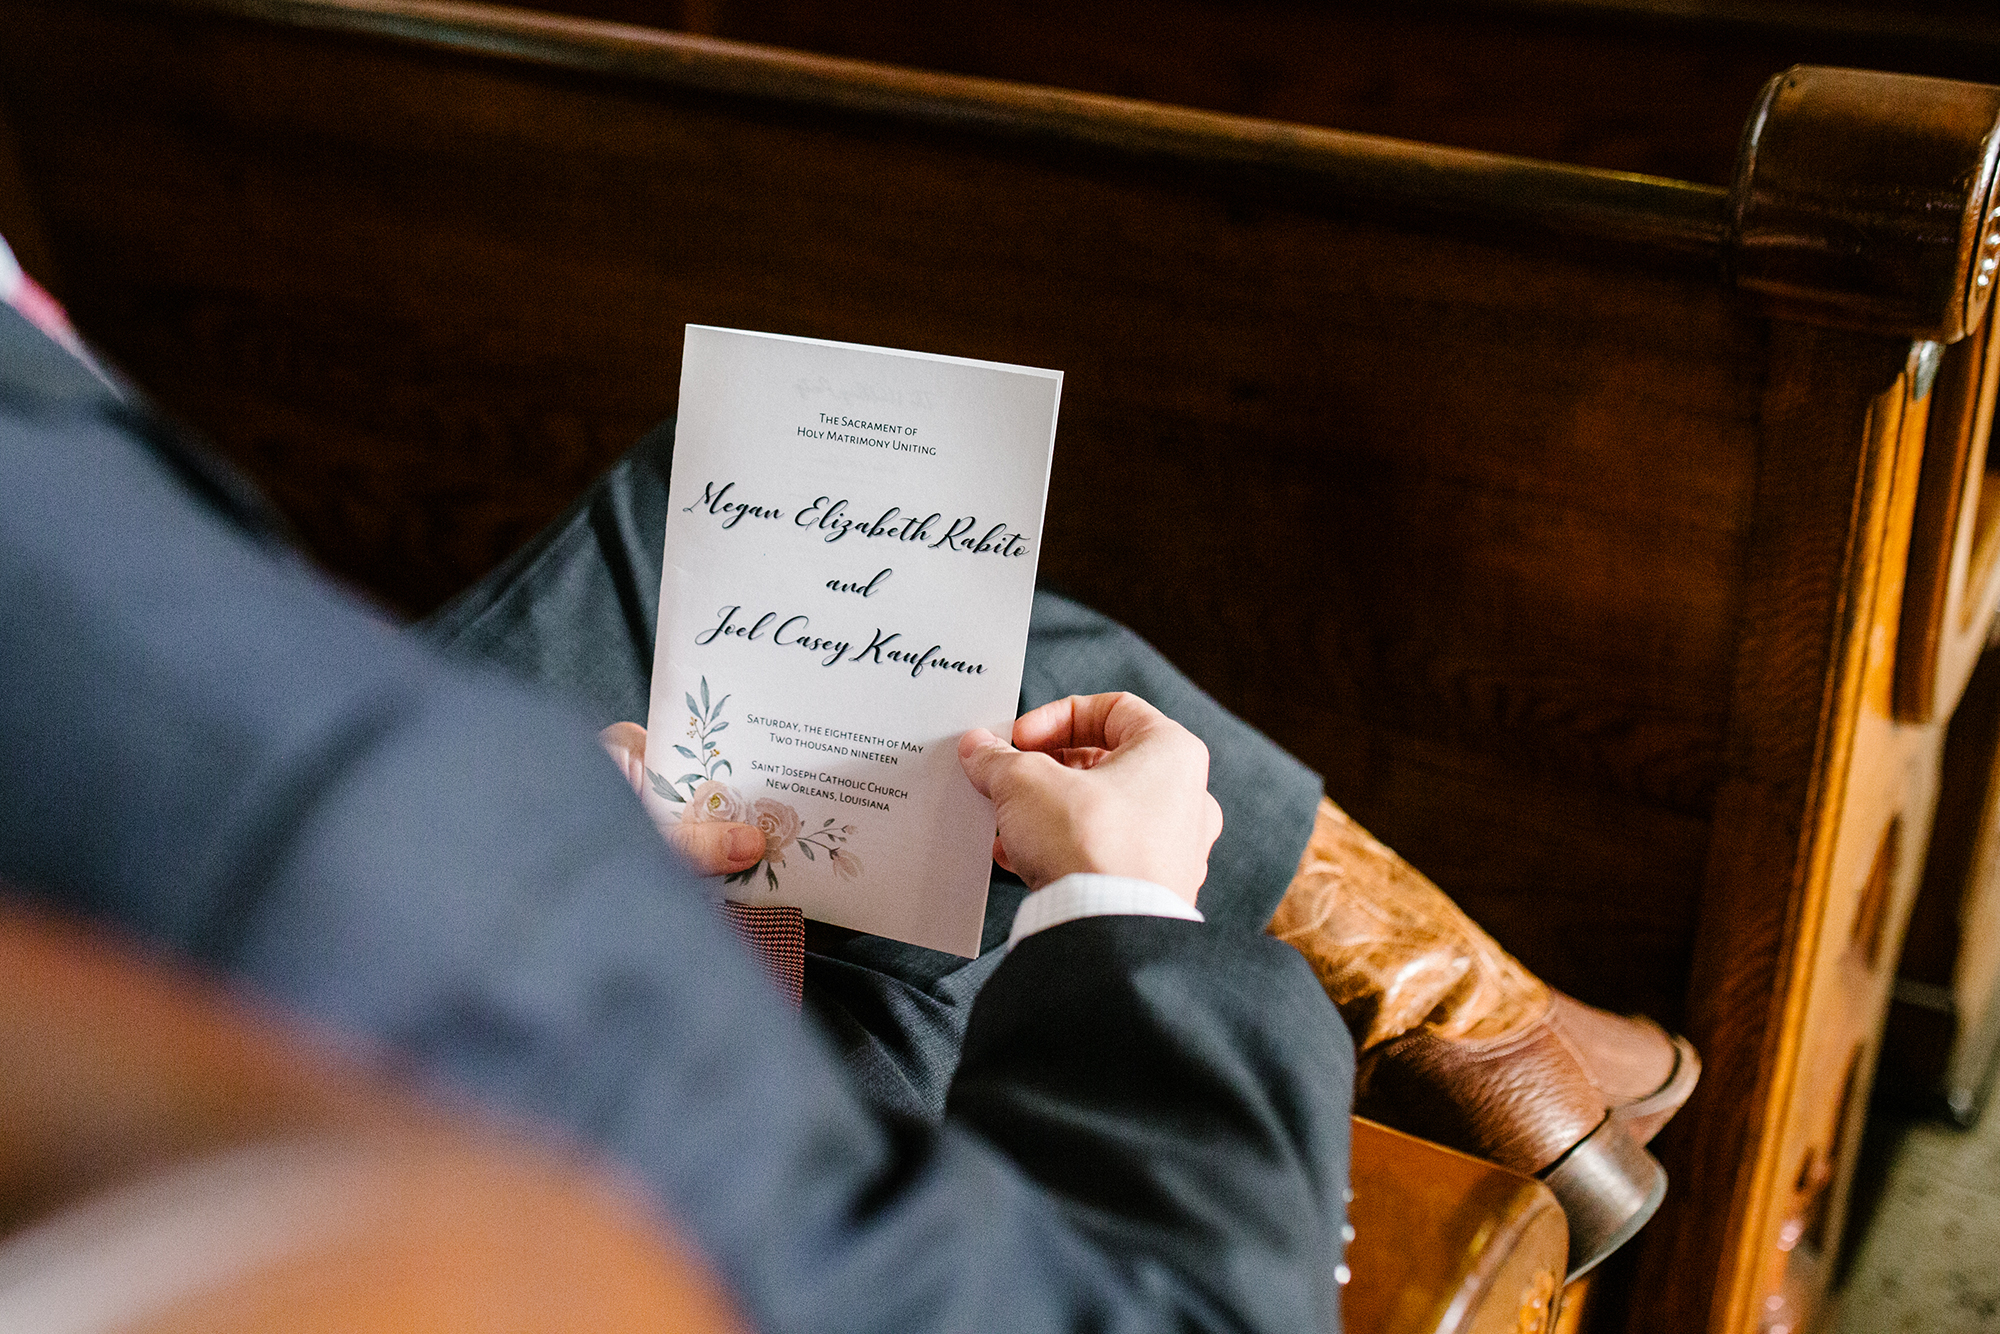 The Sacrament of
Holy Matrimony Uniting
Megan Elizabeth Rabito
and
Joel Casey Kaufman
Saturday, the eighteenth of May
Two thousand nineteen
Saint Joseph Catholic Church
New Orleans, Louisiana